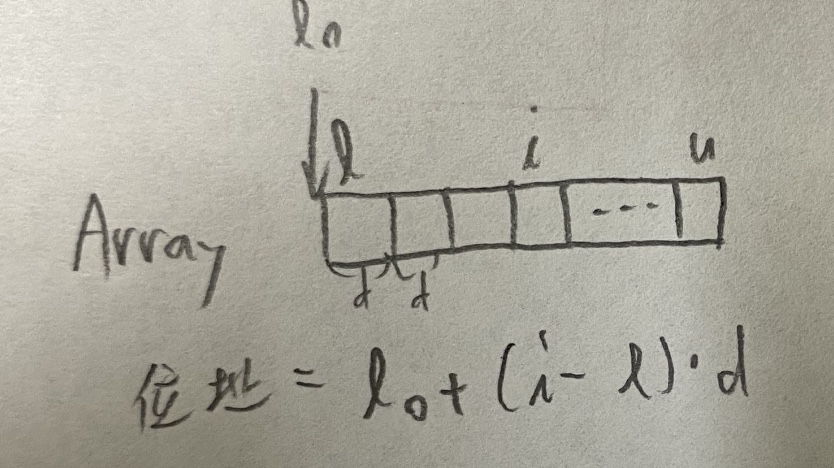 l₀
l i u
Array ---
d d
位址 = l₀ + (i - l)·d